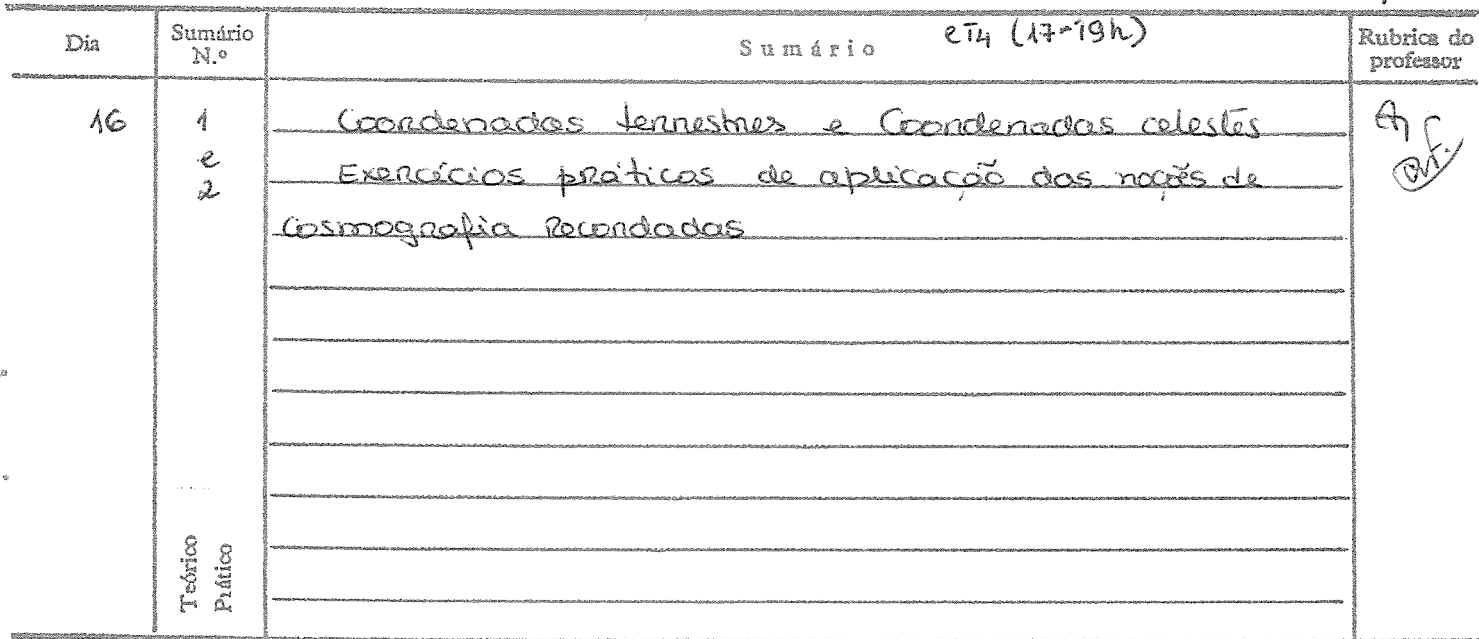 Dia Sumário N.º Sumário eT4 (17-19h) Rubrica do professor
16 1 e 2 Coordenadas terrestres e Coordenadas celestes
Exercícios práticos de aplicação das noções de
Cosmografia Recordadas
Teórico
Prático